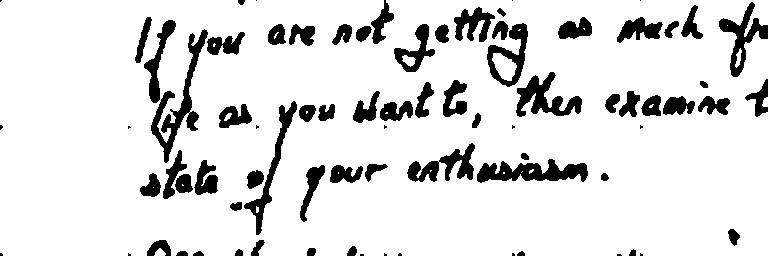 If you are not getting as much
life as you want to, then examine
state of your enthusiasm.